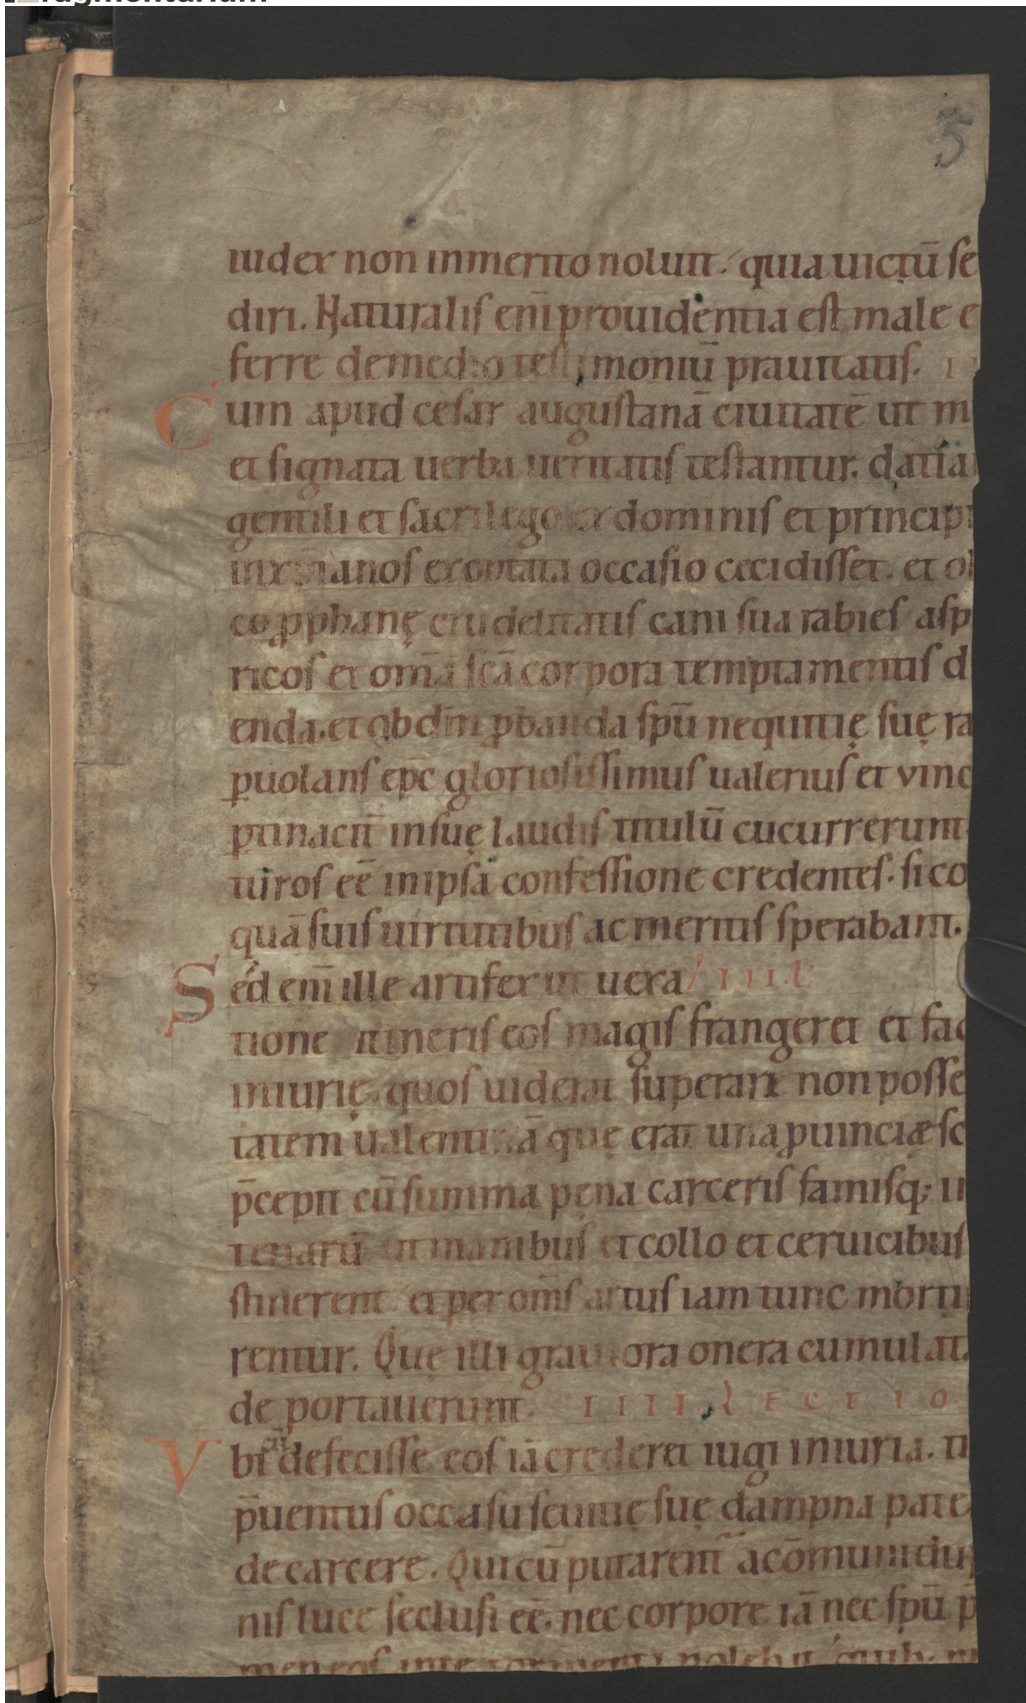 5
iudex non inmerito noluit. quia uictū se
diri. Naturalis enī prouidentia est male e
ferre demedio testimoniū prauitatis.
Cum apud cesar augustanā ciuitatē ut m
et signata uerba ueritatis testantur. datia
gentili et sacrilego ex dominis et principi
inxp̄ianos exoptata occasio cecidisset. et ob
co ꝓphanę crudelitatis cani sua rabies asp
ricos et om̄a sc̄a corpora temptamentis d
enda. et ob dn̄m ꝓbanda sp̄u nequitię suę ra
ꝓuolans ep̄c gloriosissimus ualerius et vinc
ptinacit̄ insuę laudis titulū cucurrerunt.
uiros eē inipsa confessione credentes. si co
quā suis uirtutibus ac meritis sperabant.
Sed enī ille artifex ut uera III.L
tione itineris eos magis frangeret et fac
iniurię. quos uiderat superari non posse
tatem ualentinā quę erat una ꝓuincię sc
p̄cepit cū summa pęna carceris famisq; u
tenarū ut manibus et collo et ceruicibus
stinerent. et per om̄s artus iam tunc mortu
rentur. Quę illi grauiora onera cumulat.
de portauerunt. IIII. LECTIO.
Vbi n̄ defecisse eos iā crederet iugi iniuria. ti
p̄uentus occasu seuitię suę dampna pate
de carcere. Qui cū putarent acōmuni diu
nis luce seclusi eē. nec corpore iā nec sp̄u p̄
men eos inte tormenta